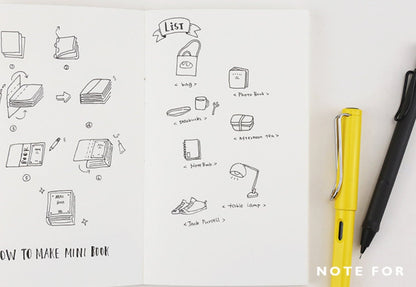 ①
②
③
④
⑤
⑥
OW TO MAKE MINI BOOK
LIST
< bag >
< Photo Book >
< Starbucks >
< Afternoon tea >
< Note Book >
< table lamp >
< Jack Purcell >
NOTE FOR